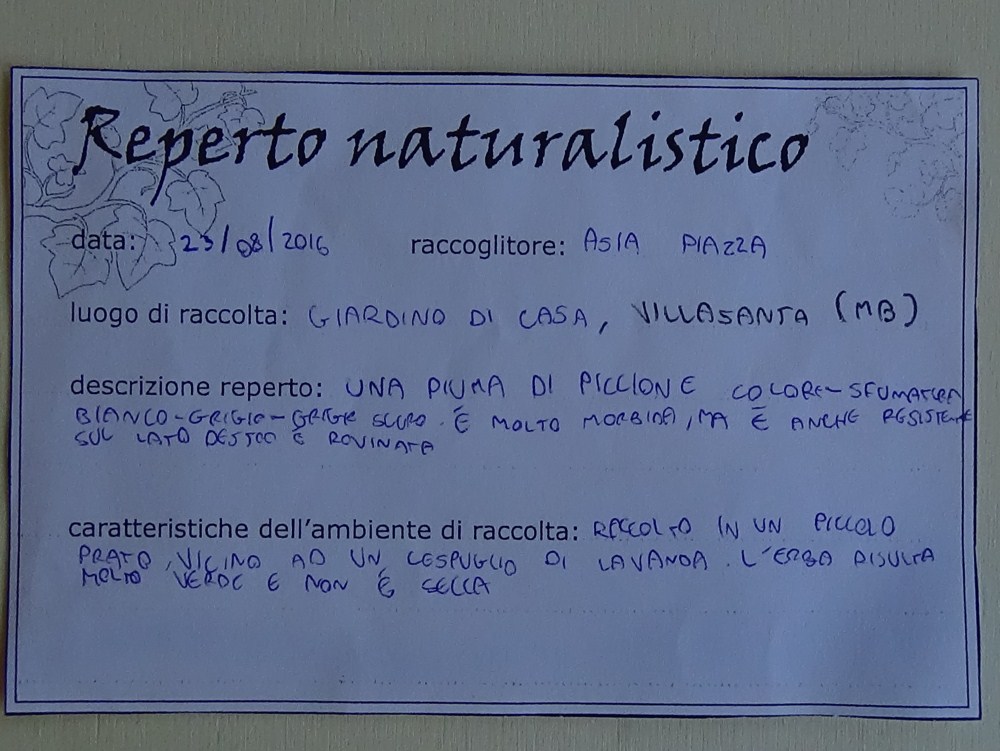 Reperto naturalistico
data: 23/08/2016 raccoglitore: ASIA PIAZZA
luogo di raccolta: GIARDINO DI CASA, VILLASANTA (MB)
descrizione reperto: UNA PIUMA DI PICCIONE COLORE-SFUMATURA
BIANCO-GRIGIO-GRIGIO SCURO. È MOLTO MORBIDA, MA È ANCHE RESISTENTE
SUL LATO DESTRO È ROVINATA
caratteristiche dell'ambiente di raccolta: RACCOLTO IN UN PICCOLO
PRATO, VICINO AD UN CESPUGLIO DI LAVANDA. L'ERBA RISULTA
MOLTO VERDE E NON È SECCA